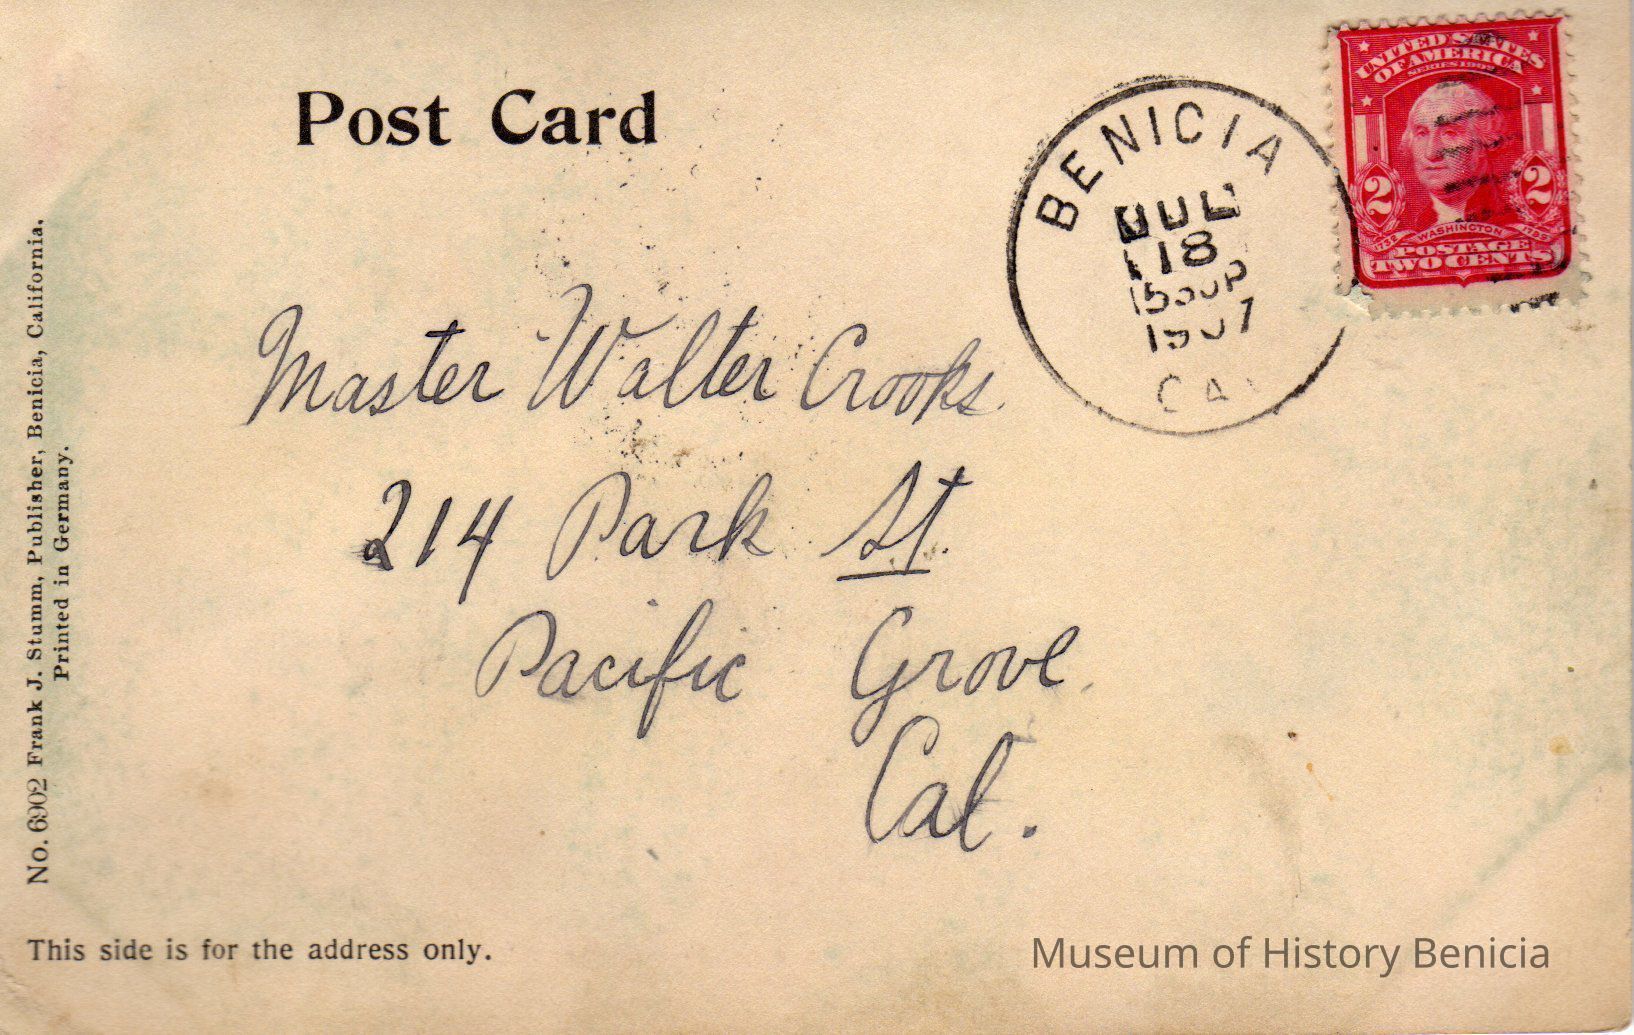 Post Card
UNITED STATES
OF AMERICA
SERIES 1902
2 2
1732 WASHINGTON 1799
POSTAGE
TWO CENTS
BENICIA
JUL
18
1907
CAL
Master Walter Crooks.
214 Park St.
Pacific Grove.
Cal.
No. 6902 Frank J. Stumm, Publisher, Benicia, California.
Printed in Germany.
This side is for the address only.
Museum of History Benicia